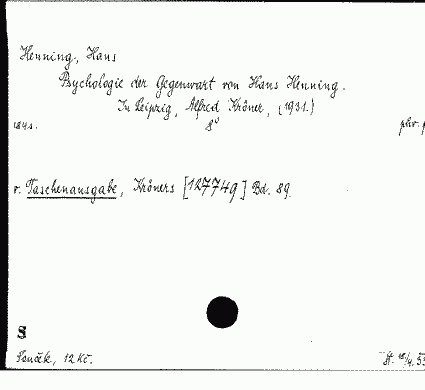 Henning, Hans
Psychologie der Gegenwart von Hans Henning.
In Leipzig, Alfred Kröner, (1931.)
184s. 8° phr. p
v. Taschenausgabe, Kröners [127749] Bd. 89.
S
Souček, 12 Kč. St. 18/4. 53